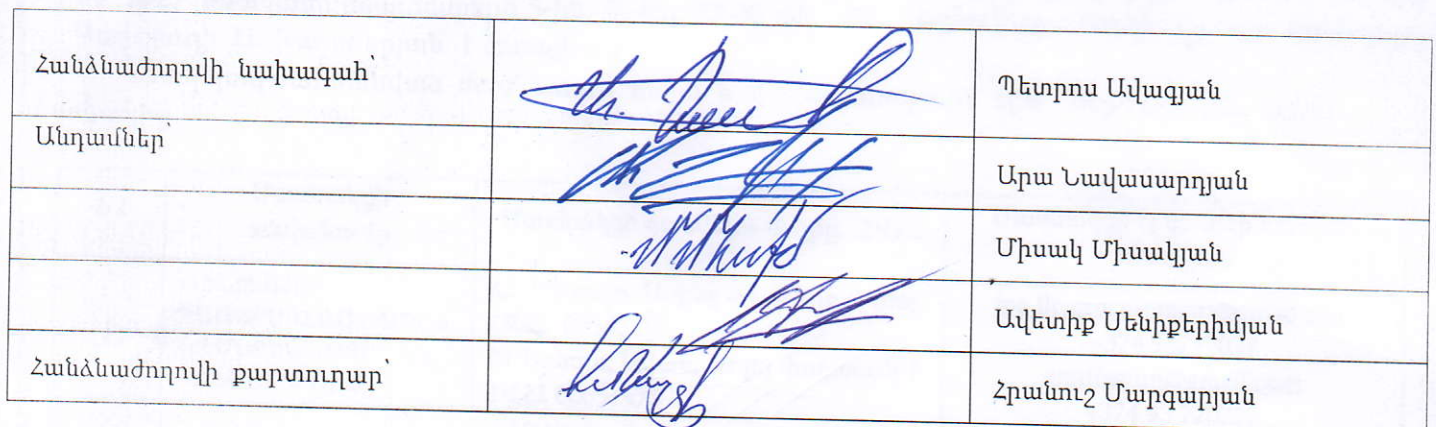 Հանձնաժողովի նախագահ՝ Պետրոս Ավագյան
Անդամներ՝ Արա Նավասարդյան
Միսակ Միսակյան
Ավետիք Սենիքերիմյան
Հանձնաժողովի քարտուղար՝ Հրանուշ Մարգարյան